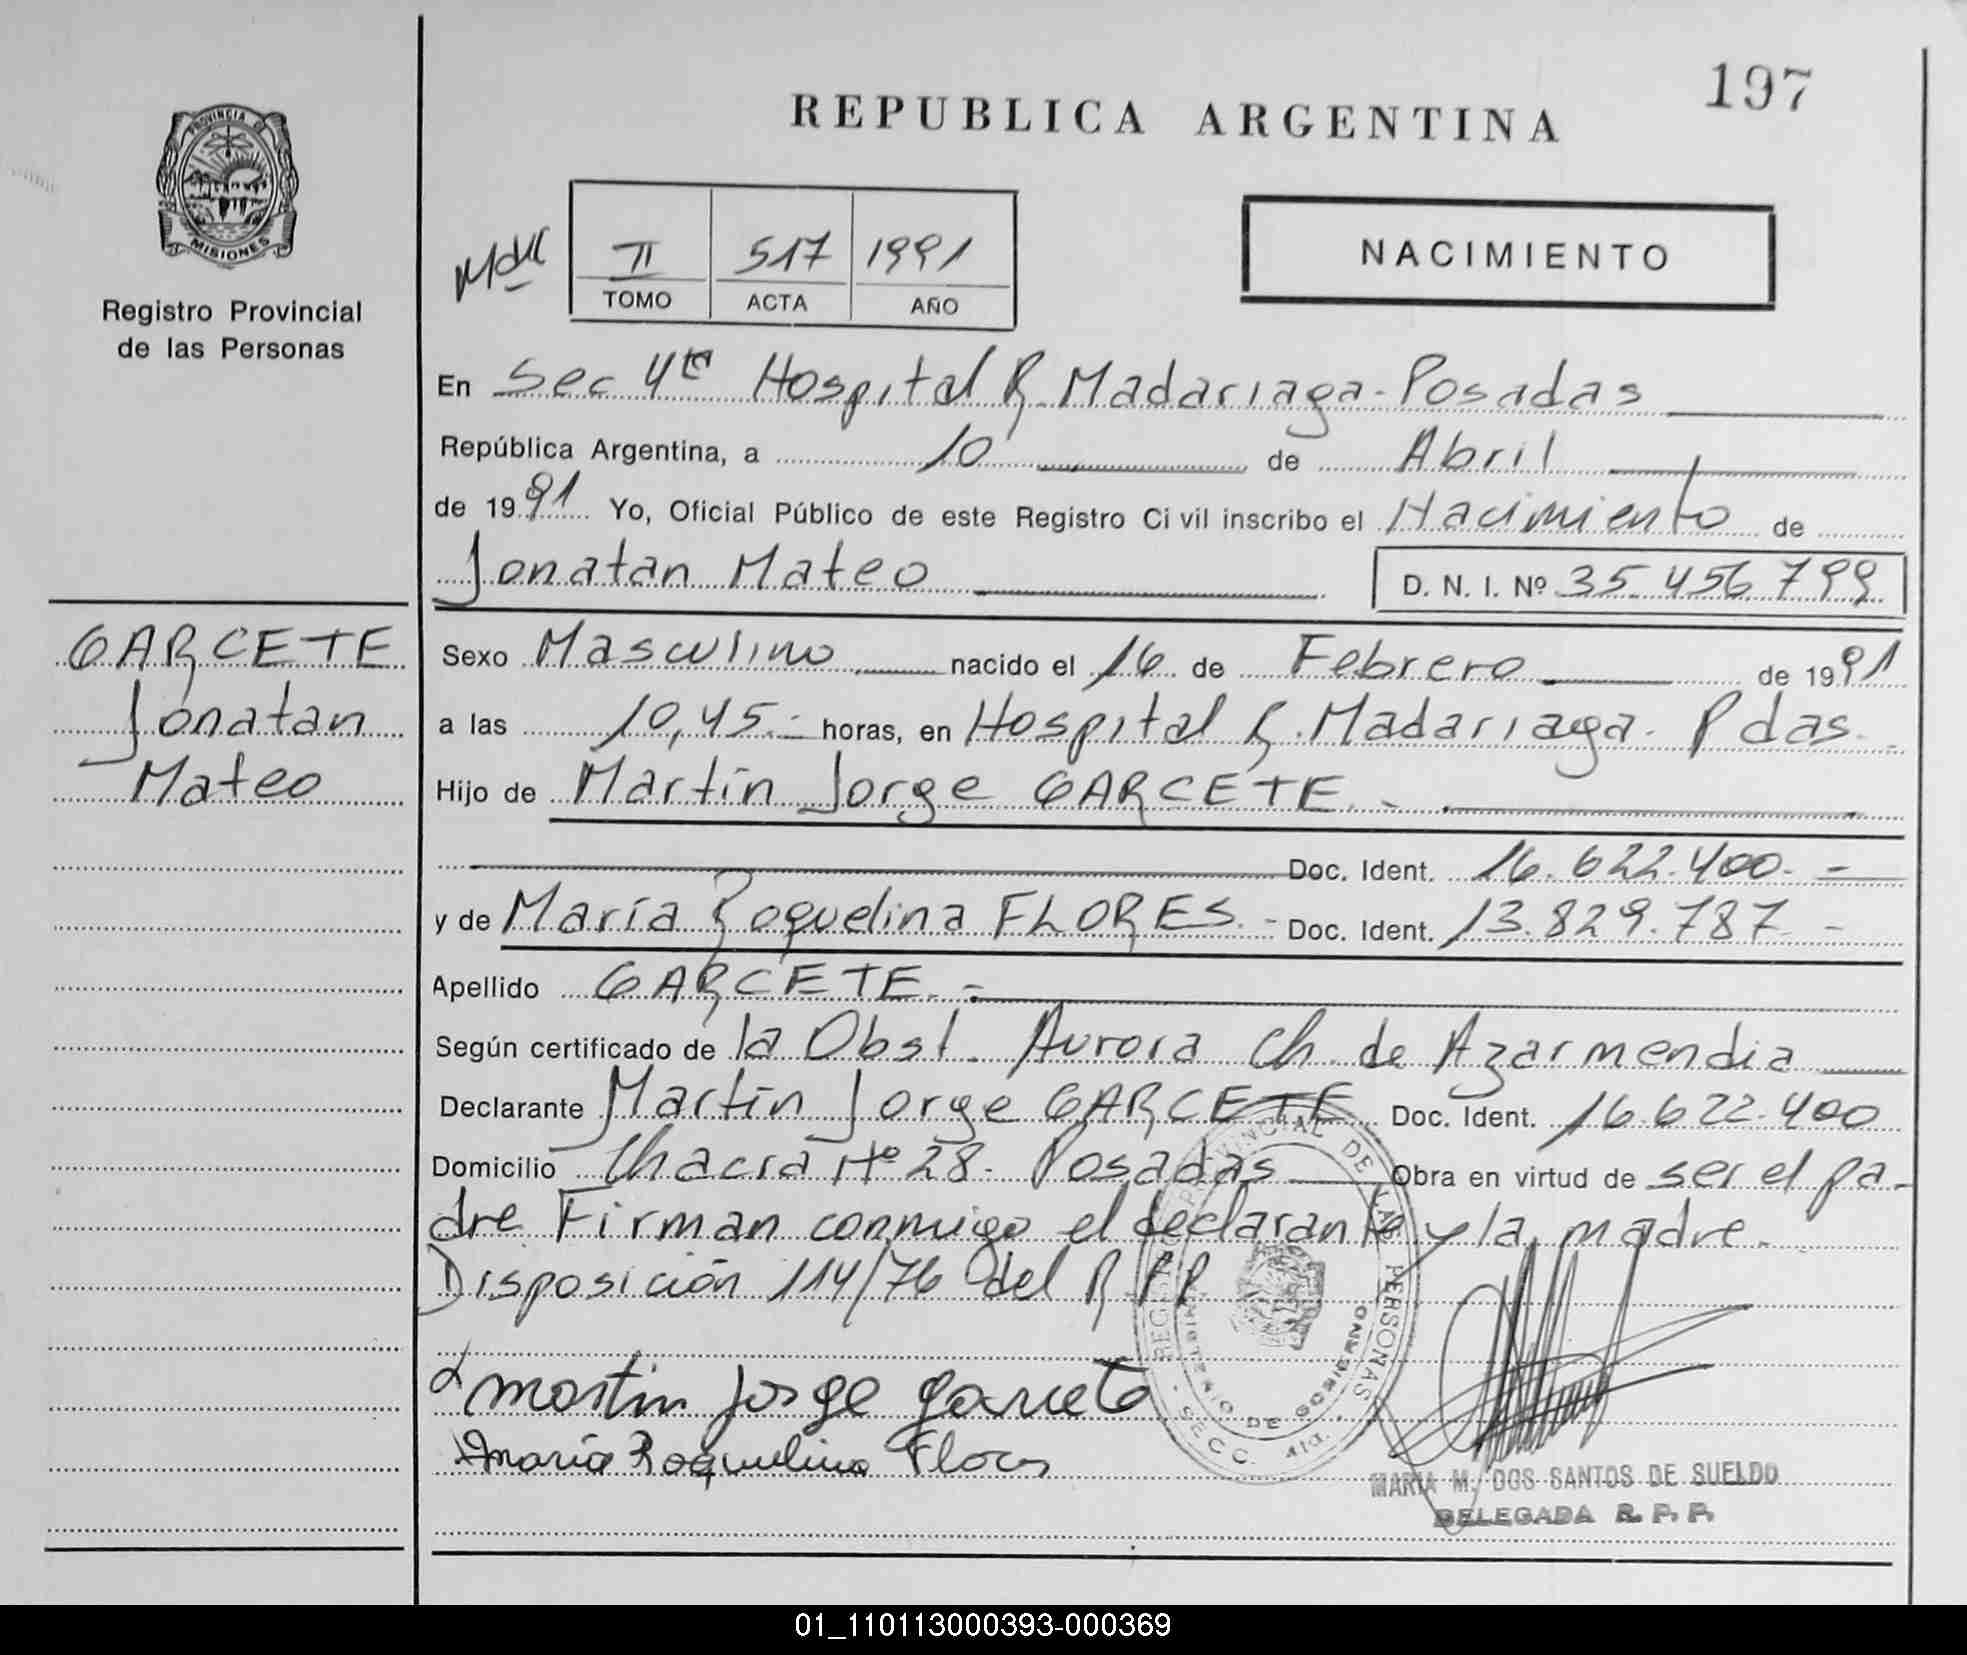 197
REPUBLICA ARGENTINA
PROVINCIA DE
MISIONES
Registro Provincial
de las Personas
NACIMIENTO
II 517 1991
TOMO ACTA AÑO
En Sec 4ta Hospital R. Madariaga - Posadas
República Argentina, a 10 de Abril
de 1991 Yo, Oficial Público de este Registro Civil inscribo el Nacimiento de
Jonatan Mateo D. N. I. Nº 35.456.799
GARCETE
Jonatan
Mateo
Sexo Masculino nacido el 16 de Febrero de 1991
a las 10,45.- horas, en Hospital R. Madariaga. Pdas.-
Hijo de Martín Jorge GARCETE.-
Doc. Ident. 16.622.400.-
y de María Roquelina FLORES.- Doc. Ident. 13.829.787 -
Apellido GARCETE.-
Según certificado de la Obst. Aurora Ch. de Azarmendia
Declarante Martín Jorge GARCETE Doc. Ident. 16.622.400
Domicilio Chacra Nº 28. Posadas Obra en virtud de ser el pa-
dre Firman conmigo el declarante y la madre.
Disposición 114/76 del R P P
martin jorge garcete
maría Roquelina Flores
REGISTRO PROVINCIAL DE LAS PERSONAS
MINISTERIO DE GOBIERNO
SECC. 4ta.
MARIA M. DOS SANTOS DE SUELDO
DELEGADA R. P. P.
01_110113000393-000369